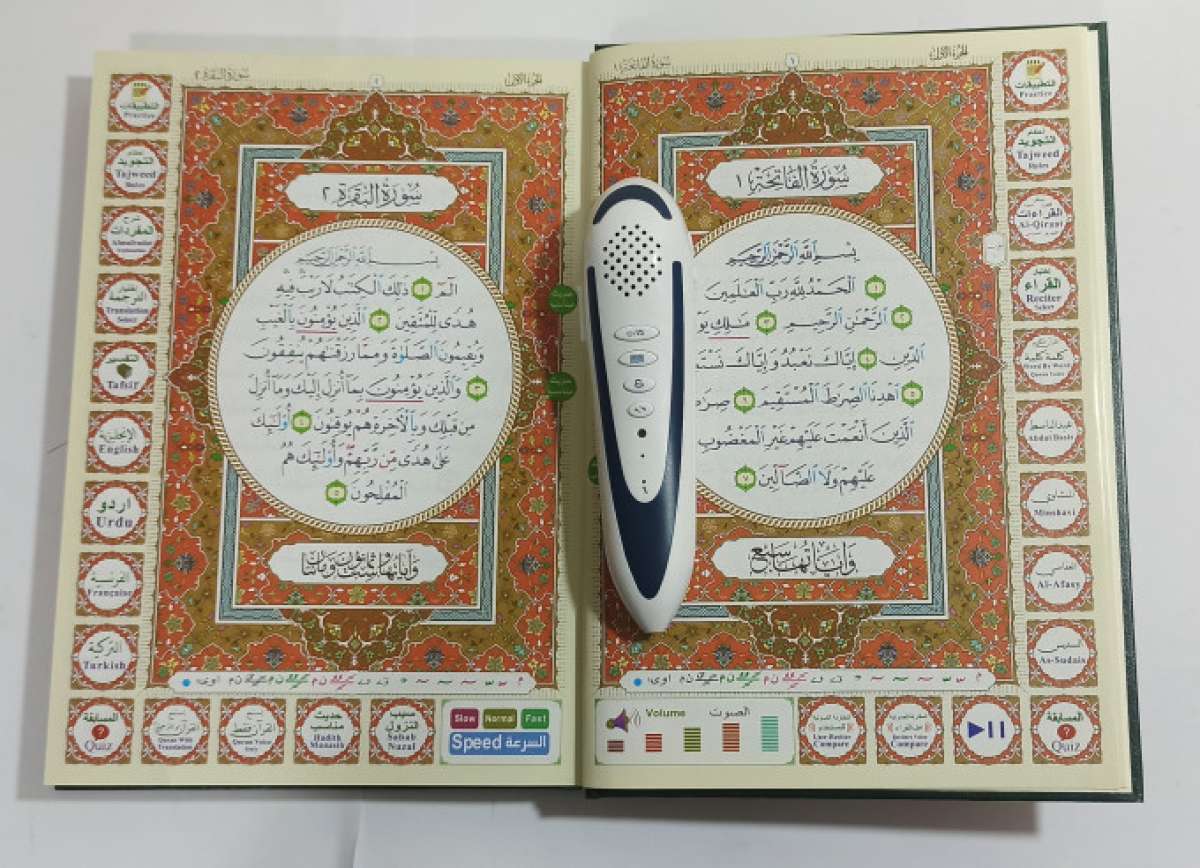 سورة الفاتحة ١
١
الجزء الأول
سُورَةُ الفَاتِحَةِ ١
بِسْمِ اللَّهِ الرَّحْمَٰنِ الرَّحِيمِ ١
الْحَمْدُ لِلَّهِ رَبِّ الْعَالَمِينَ
٢ الرَّحْمَٰنِ الرَّحِيمِ ٣ مَٰلِكِ
الدِّينِ ٤ إِيَّاكَ نَعْبُدُ وَإِيَّاكَ
٥ اهْدِنَا الصِّرَٰطَ الْمُسْتَقِيمَ ٦
الَّذِينَ أَنْعَمْتَ عَلَيْهِمْ غَيْرِ الْمَغْضُوبِ
عَلَيْهِمْ وَلَا الضَّالِّينَ ٧
وآياتها سبع
التطبيقات
Practice
أحكام
التجويد
Tajweed
Rules
القراءات
Al-Qiraat
إختيار
القراء
Reciter
Select
كلمة كلمة
Word By Word
عبدالباسط
Abdul Basit
المنشاوي
Minshavi
العفاسي
Al-Afasy
السديس
As-Sudais
المسابقة
?
Quiz
Volume
الصوت
User Reciter
Compare
Reciters Voice
Compare
سورة البقرة ٢
٢
الجزء الأول
سُورَةُ البَقَرَةِ ٢
بِسْمِ اللَّهِ الرَّحْمَٰنِ الرَّحِيمِ
الٓمٓ ١ ذَٰلِكَ الْكِتَٰبُ لَا رَيْبَ فِيهِ
هُدًى لِلْمُتَّقِينَ ٢ الَّذِينَ يُؤْمِنُونَ بِالْغَيْبِ
وَيُقِيمُونَ الصَّلَوٰةَ وَمِمَّا رَزَقْنَٰهُمْ يُنْفِقُونَ
٣ وَالَّذِينَ يُؤْمِنُونَ بِمَا أُنْزِلَ إِلَيْكَ وَمَا أُنْزِلَ
مِنْ قَبْلِكَ وَبِالْآخِرَةِ هُمْ يُوقِنُونَ ٤ أُولَٰئِكَ
عَلَىٰ هُدًى مِنْ رَبِّهِمْ وَأُولَٰئِكَ هُمُ
الْمُفْلِحُونَ ٥
وآياتها ست وثمانون ومائتان
التطبيقات
Practice
أحكام
التجويد
Tajweed
Rules
شرح
المفردات
إختيار
الترجمة
Translation
Select
التفسير
Tafsir
الإنجليزية
English
اردو
Urdu
الفرنسية
Française
التركية
Turkish
المسابقة
?
Quiz
Quran With
Translation
Quran Voice
Only
حديث
مناسب
Hadith
Munasib
سبب
النزول
Sabab
Nazul
Slow Normal Fast
Speed السرعة